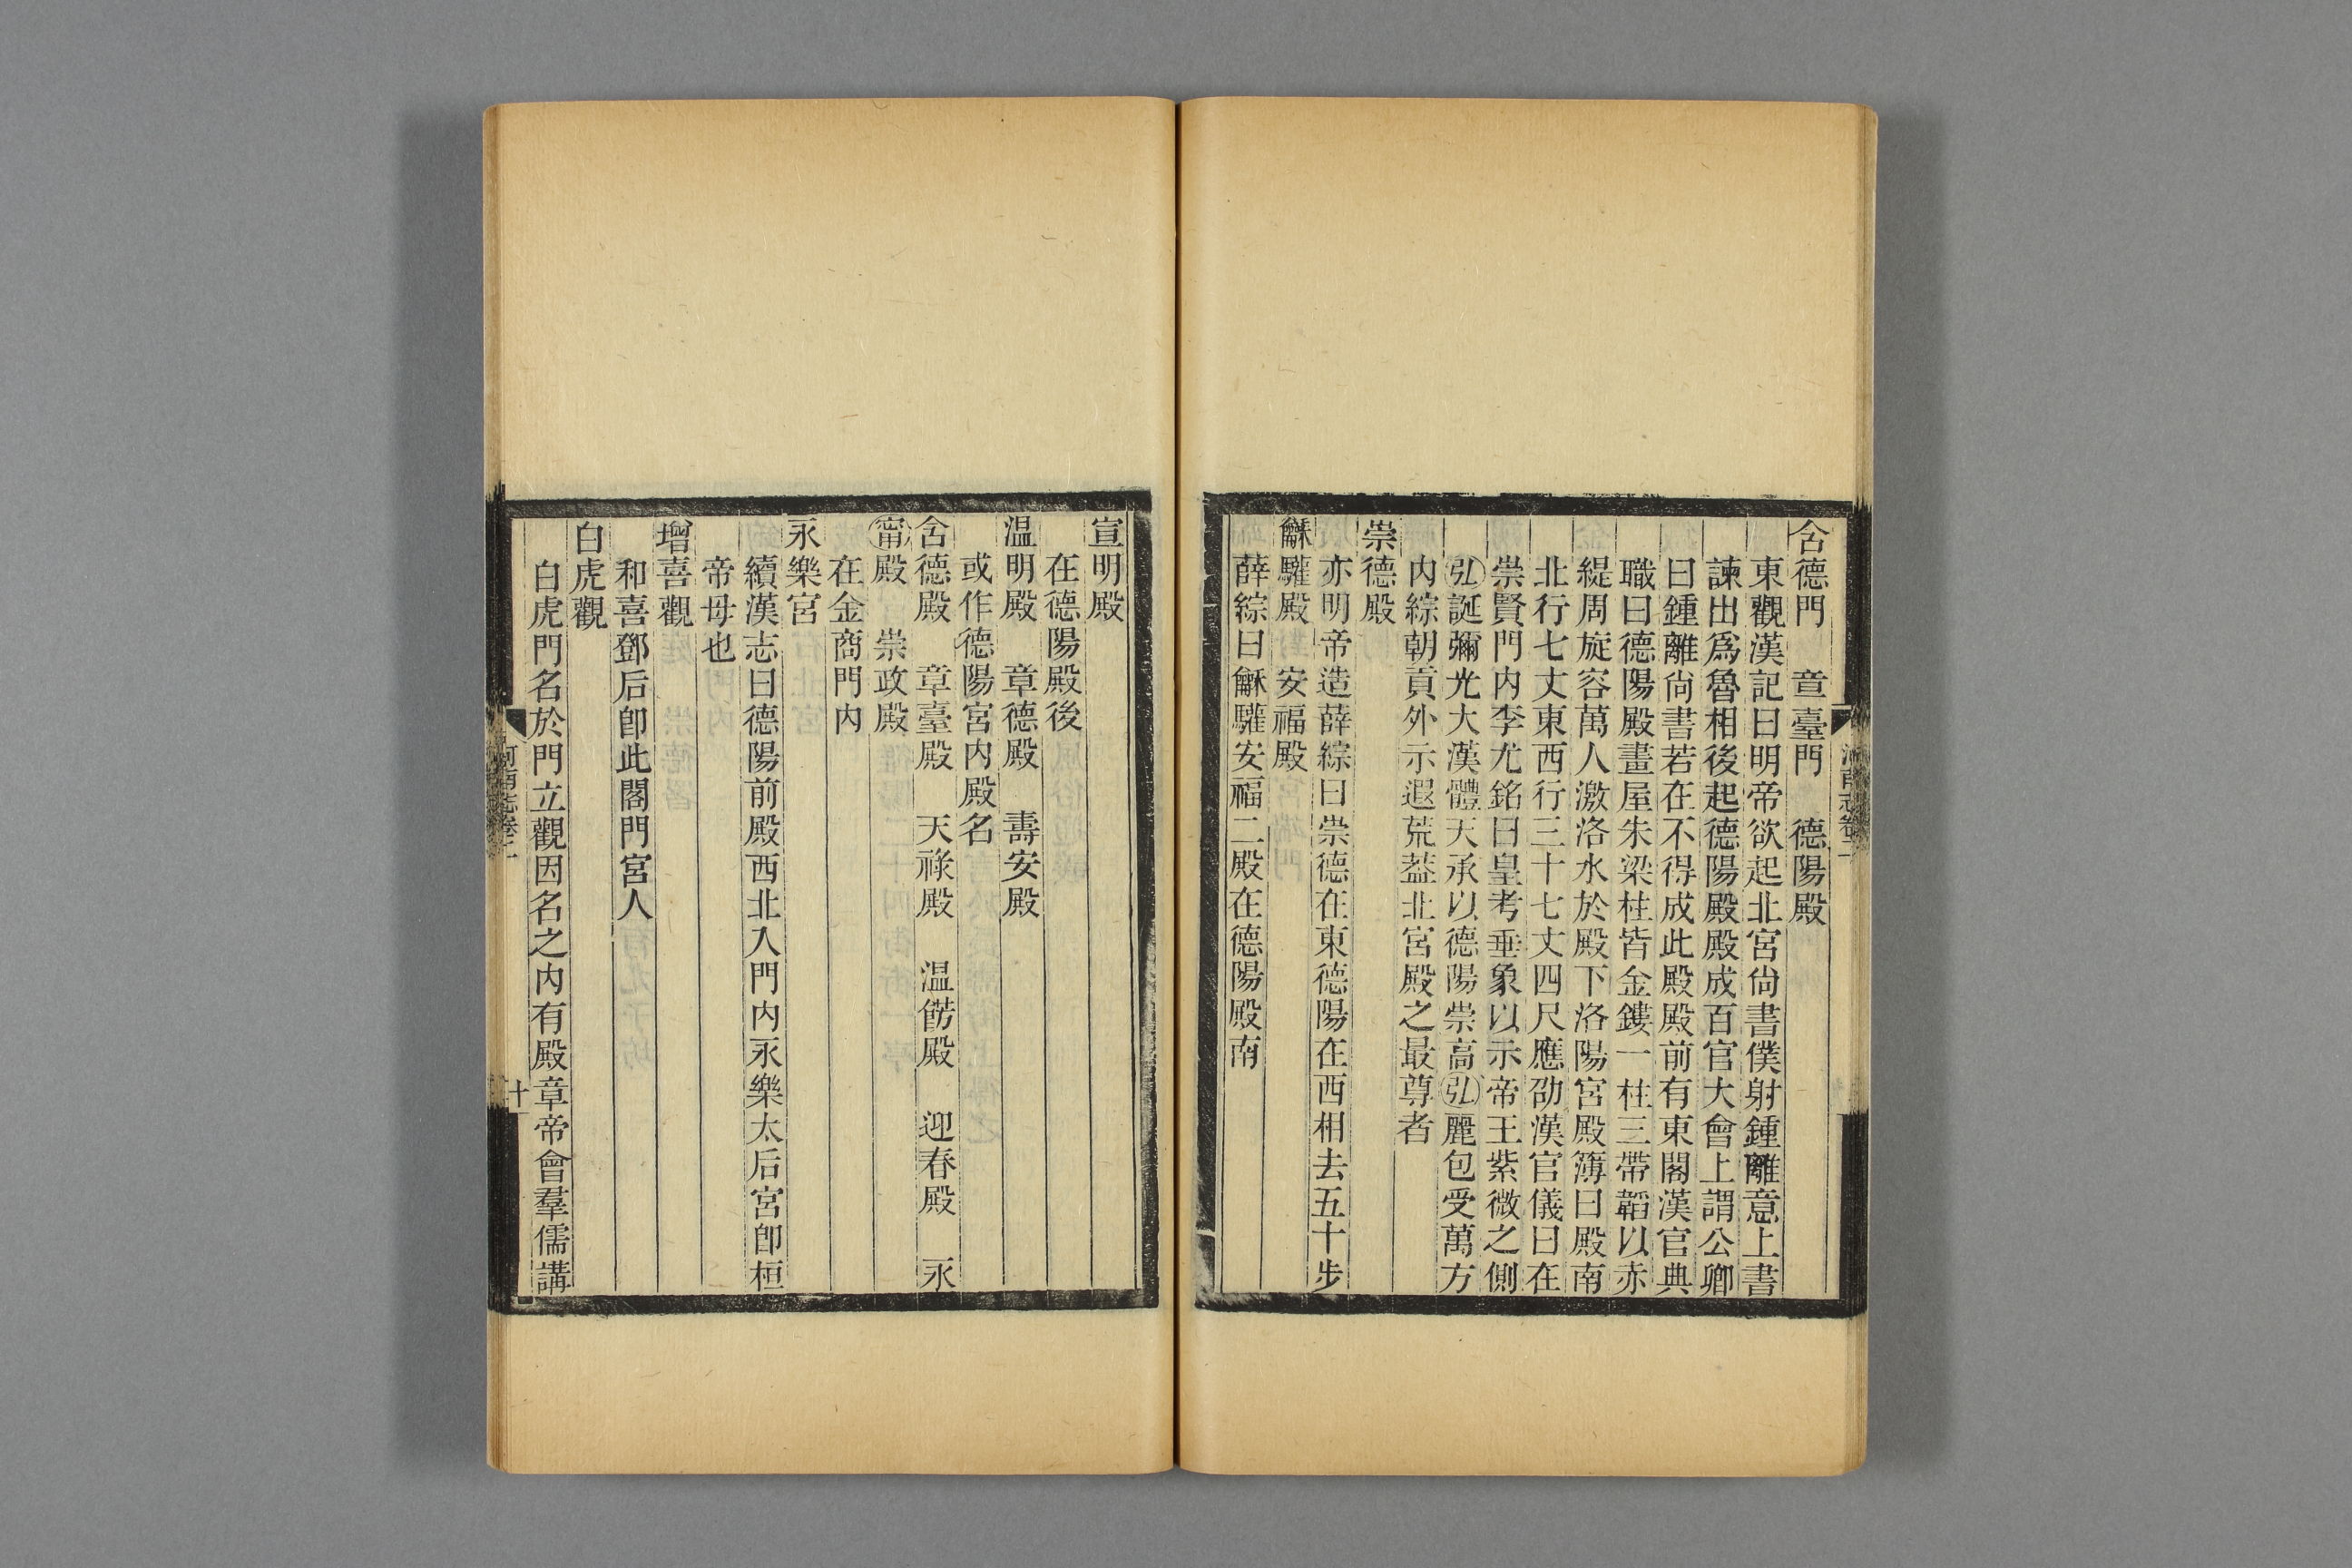 含德門　章臺門　德陽殿
東觀漢記曰明帝欲起北宮尙書僕射鍾離意上書
諫出爲魯相後起德陽殿殿成百官大會上謂公卿
曰鍾離尙書若在不得成此殿殿前有東閣漢官典
職曰德陽殿畫屋朱梁柱皆金鏤一柱三帶韜以赤
緹周旋容萬人激洛水於殿下洛陽宮殿簿曰殿南
北行七丈東西行三十七丈四尺應劭漢官儀曰在
崇賢門內李尤銘曰皇考垂象以示帝王紫微之側
弘誕彌光大漢體天承以德陽崇高弘麗包受萬方
內綜朝貢外示遐荒葢北宮殿之最尊者
崇德殿
亦明帝造薛綜曰崇德在東德陽在西相去五十步
龢驩殿　安福殿
薛綜曰龢驩安福二殿在德陽殿南
宣明殿
在德陽殿後
温明殿　章德殿　壽安殿
或作德陽宮內殿名
含德殿　章臺殿　天祿殿　温飭殿　迎春殿　永
甯殿　崇政殿
在金商門內
永樂宮
續漢志曰德陽前殿西北入門內永樂太后宮卽桓
帝母也
增喜觀
和喜鄧后卽此閣門宮人
白虎觀
白虎門名於門立觀因名之內有殿章帝會羣儒講
河南志卷二
十